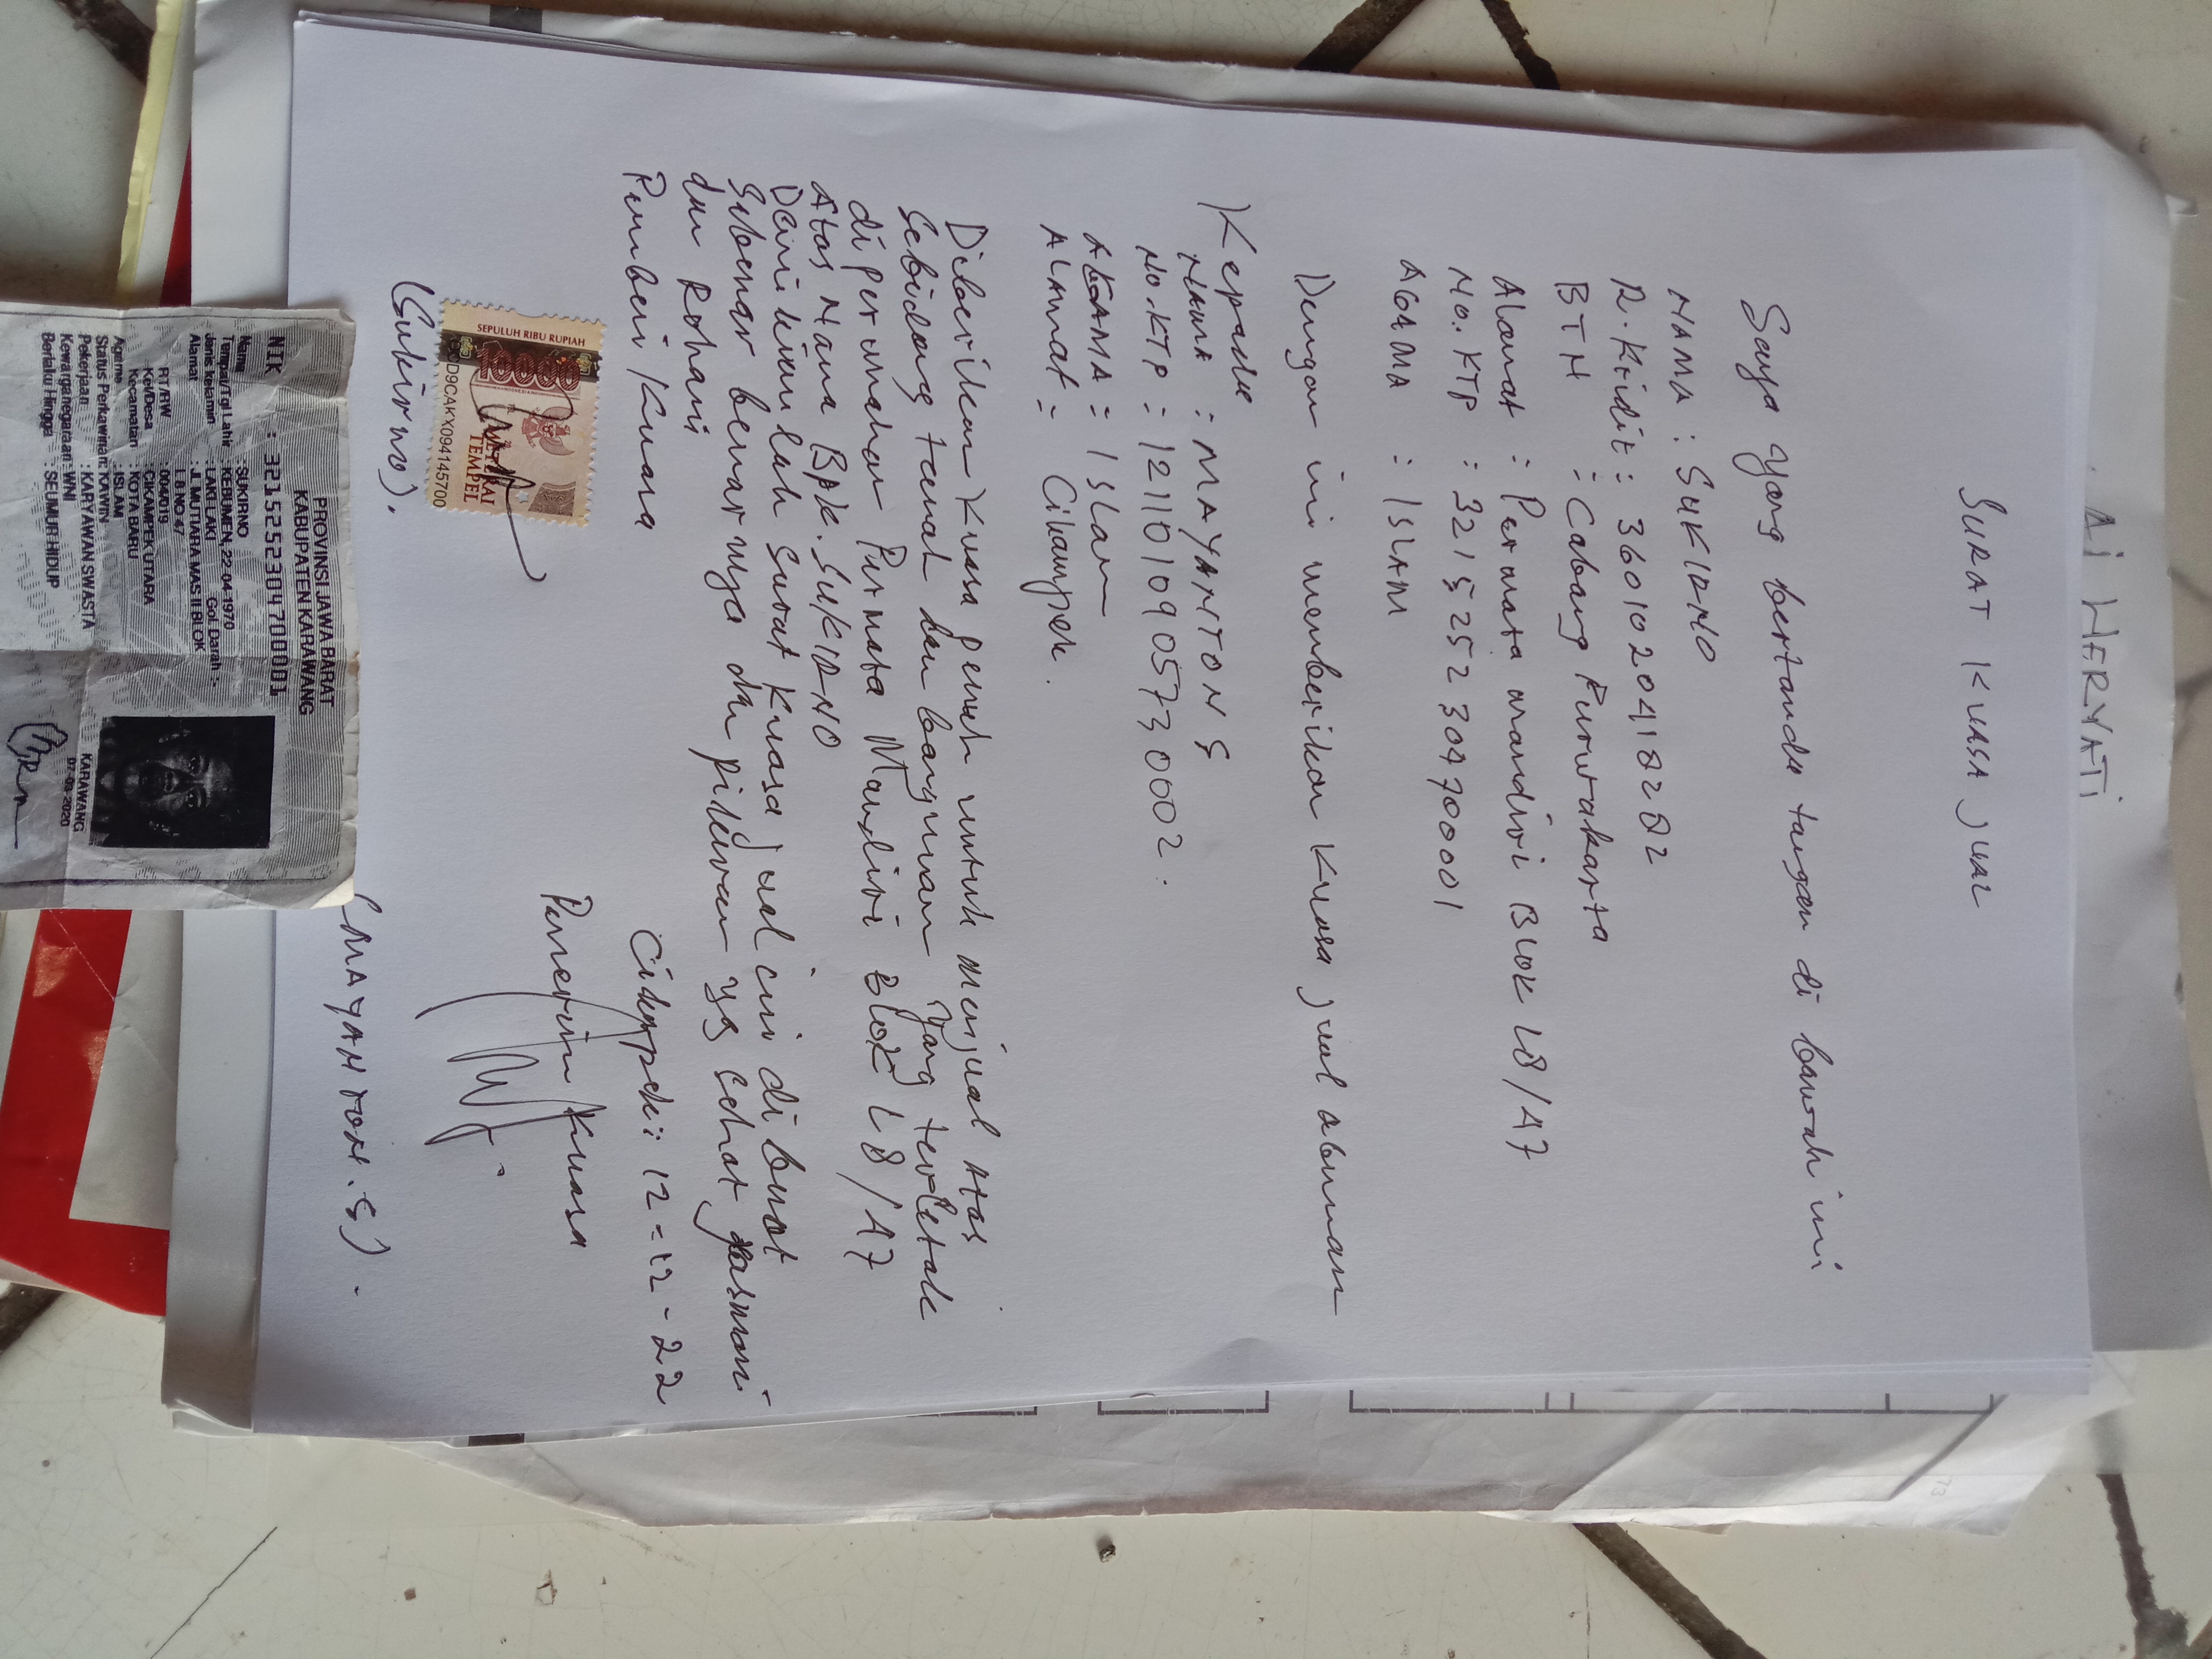 Ai HERYATi
SURAT KUASA JUAL
Saya yang bertanda tangan di bawah ini
NAMA : SUKIRNO
R. Kridit : 3601020418282
BTN : Cabang Purwakarta
Alamat : Permata mandiri BLOK L8/47
No. KTP : 3215252304700001
AGAMA : ISLAM
Dengan ini memberikan Kuasa jual
Kepada
NAMA : MAYANTON S
NO. KTP : 1211010905730002.
AGAMA : ISLam
ALAMAT : Cikampek.
Diberikan Kuasa penuh untuk menjual Atas
Sebidang tanah dan bangunan yang terletak
di perumahan Permata Mandiri BLOK L8/47
Atas Nama BPK. SUKIRNO
Demikianlah surat Kuasa jual ini di buat
Sebenar benarnya dan pikiran yg sehat jasmani
dan Rohani
12-12-22
Pemberi Kuasa
Penerima Kuasa
SEPULUH RIBU RUPIAH
10000
METERAI
TEMPEL
D9CAKX094145700
(Sukirno).
(MAYANTON.S).
PROVINSI JAWA BARAT
KABUPATEN KARAWANG
NIK : 3215252304700001
Nama : SUKIRNO
Tempat/Tgl Lahir : KEBUMEN, 22-04-1970
Jenis kelamin : LAKI-LAKI Gol. Darah : -
Alamat : JL MUTIARA MAS II BLOK
L 8 NO 47
RT/RW : 004/019
Kel/Desa : CIKAMPEK UTARA
Kecamatan : KOTA BARU
Agama : ISLAM
Status Perkawinan: KAWIN
Pekerjaan : KARYAWAN SWASTA
Kewarganegaraan: WNI
Berlaku Hingga : SEUMUR HIDUP
KARAWANG
07-03-2020
73